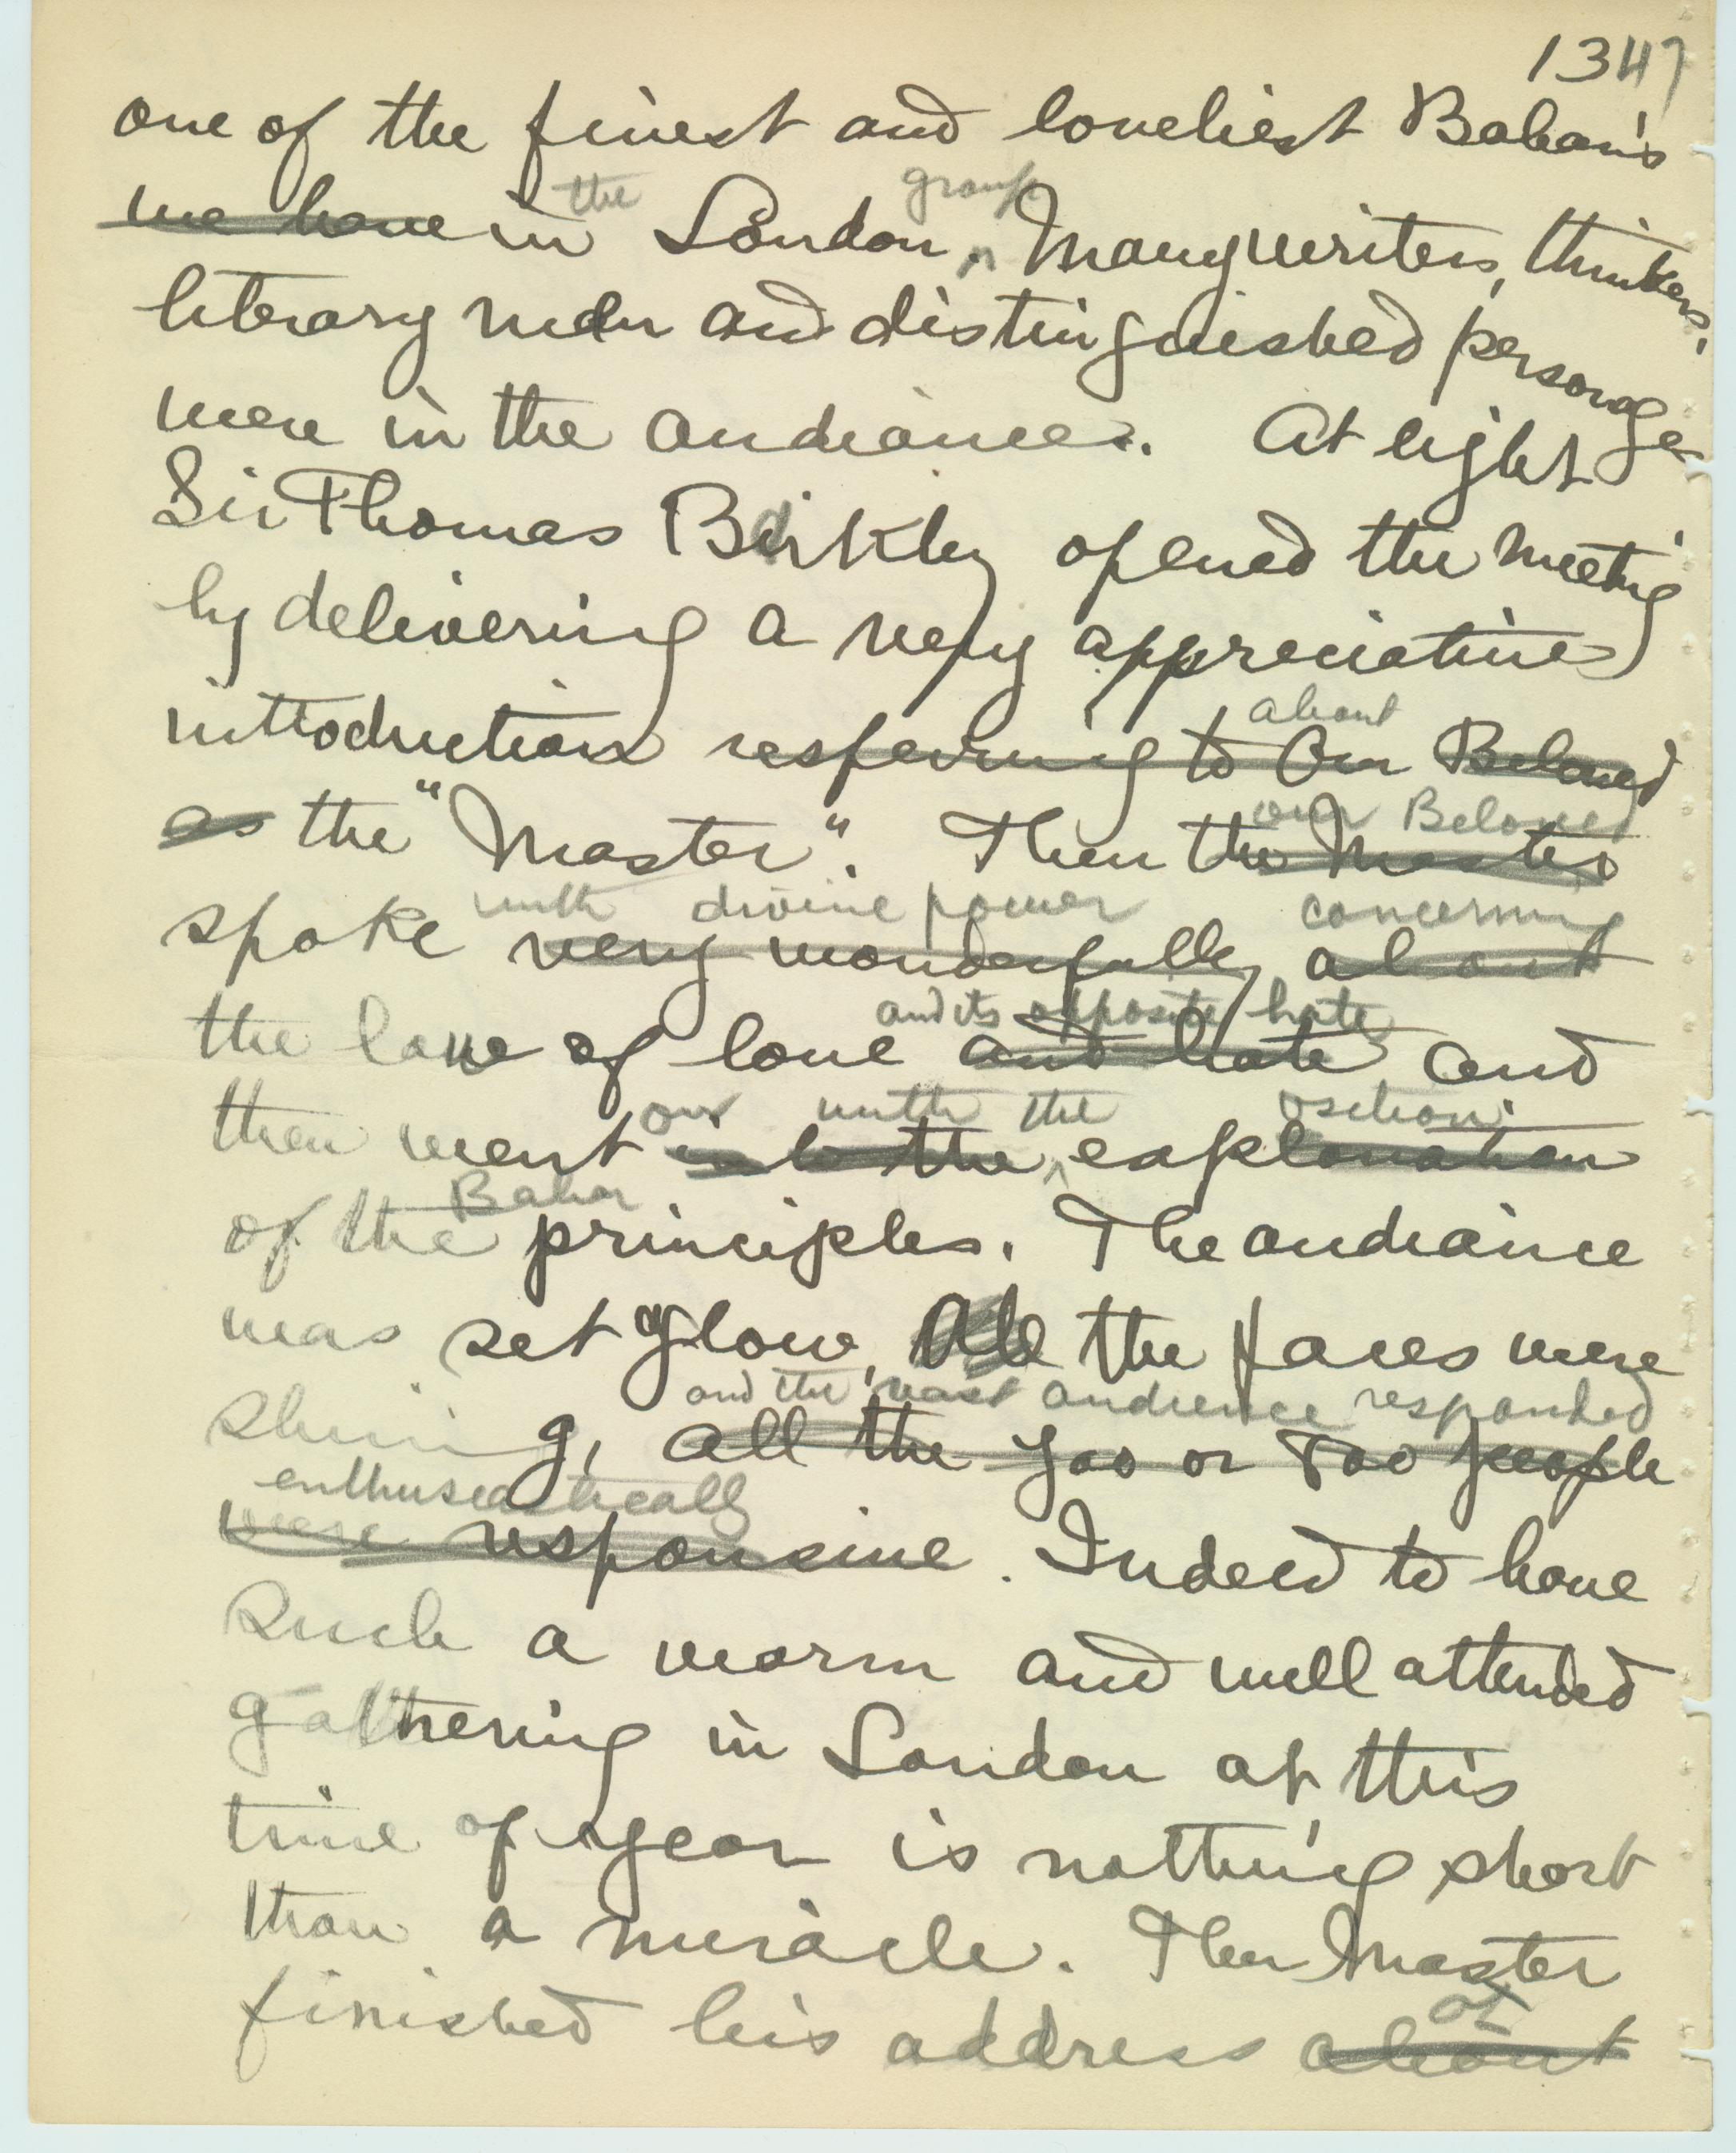 1347
one of the finest and loveliest Bahai's
we have in the London group, Many writers, thinkers,
literary men and distinguished personages
were in the audiance. At eight
Sir Thomas opened the meeting
by delivering a very appreciative
introduction referring to about Our Beloved
as the "Master". Then the Master our Beloved
spoke very wonderfully about with divine power concerning
the law of love and hate and its opposite hate and
then went into the on with the explanation osition
of the Bahai principles. The audiance
was set glow, All the faces were
shining, all the 700 or 800 people and the vast audience responded
were responsive enthusiastically. Indeed to have
such a warm and well attended
gathering in London at this
time of year is nothing short
than a miracle. The Master
finished his address about at